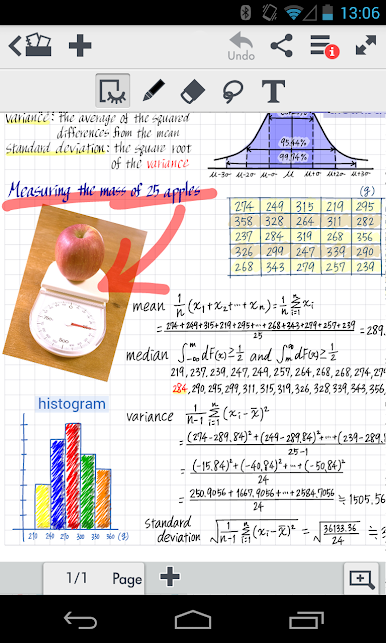 13:06
Undo
T
variance: the average of the squared
differences from the mean
standard deviation: the square root
of the variance
95.44%
99.74%
μ-3σ μ-2σ μ-σ μ μ+σ μ+2σ μ+3σ
Measuring the mass of 25 apples
(g)
274 249 315 219 295
358 328 264 311 282
237 284 319 268 356
326 299 247 339 290
268 343 279 257 239
mean 1/n (x₁+x₂+⋯+xₙ) = 1/n Σⁿᵢ₌₁ xᵢ
= 274+249+315+219+295+⋯+268+343+279+257+239 / 25 = 289.
median ∫ᵐ₋∞ dF(x) ≥ 1/2 and ∫∞ₘ dF(x) ≥ 1/2
219, 237, 239, 247, 249, 257, 264, 268, 268, 274, 27
284, 290, 295, 299, 311, 315, 319, 326, 328, 339, 343, 356,
histogram
variance 1/n-1 Σⁿᵢ₌₁ (xᵢ-x̄)²
= (274-289.84)²+(249-289.84)²+⋯+(239-289. / 25-1
= (-15.84)²+(-40.84)²+⋯+(-50.84)² / 24
= 250.9056+1667.9056+⋯+2584.7056 / 24 ≒ 1505.56
210 240 270 300 330 360 (g)
standard
deviation √(1/n-1 Σⁿᵢ₌₁ (xᵢ-x̄)²) = √(36133.36/24) ≒
1/1 Page